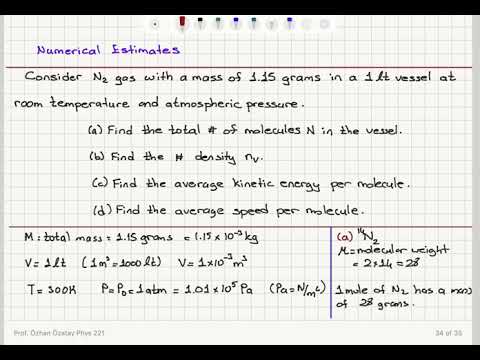 Numerical Estimates
Consider N₂ gas with a mass of 1.15 grams in a 1 lt vessel at
room temperature and atmospheric pressure.
(a) Find the total # of molecules N in the vessel.
(b) Find the # density nᵥ.
(c) Find the average kinetic energy per molecule.
(d) Find the average speed per molecule.
M = total mass = 1.15 grams = 1.15 × 10⁻³ kg
V = 1 lt (1 m³ = 1000 lt) V = 1 × 10⁻³ m³
T = 300K P = P₀ = 1 atm = 1.01 × 10⁵ Pa (Pa = N/m²)
(a) ¹⁴N₂
μ = molecular weight
= 2 × 14 = 28
1 mole of N₂ has a mass
of 28 grams.
Prof. Özhan Özatay Phys 221
34 of 35